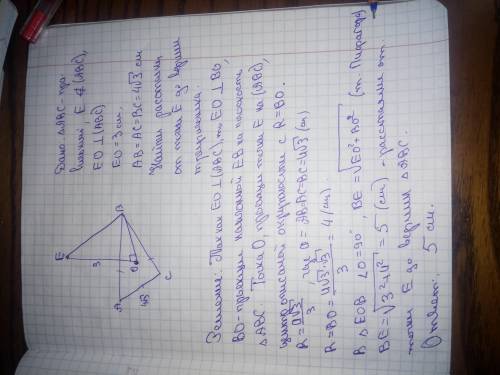 Дано: △ABC - пра-
вильный, E ∉ (ABC),
EO ⊥ (ABC)
EO = 3 см.
AB = AC = BC = 4√3 см
Найти расстояние
от точки E до вершин
треугольника.
E
B
3
O
A
C
4√3
Решение: Так как EO ⊥ (ABC), то EO ⊥ BO,
BO - проекция наклонной EB на плоскость
△ABC. Точка O, проекция точки E на (ABC),
центр описаной окружности с R = BO.
R = a√3/3, где a = AB = AC = BC = 4√3 (см)
R = BO = 4√3·√3/3 = 4 (см)
В △EOB ∠O = 90°, BE = √EO² + BO² (т. Пифагора)
BE = √3² + 4² = 5 (см) - расстояние от
точки E до вершин △ABC.
Ответ: 5 см.